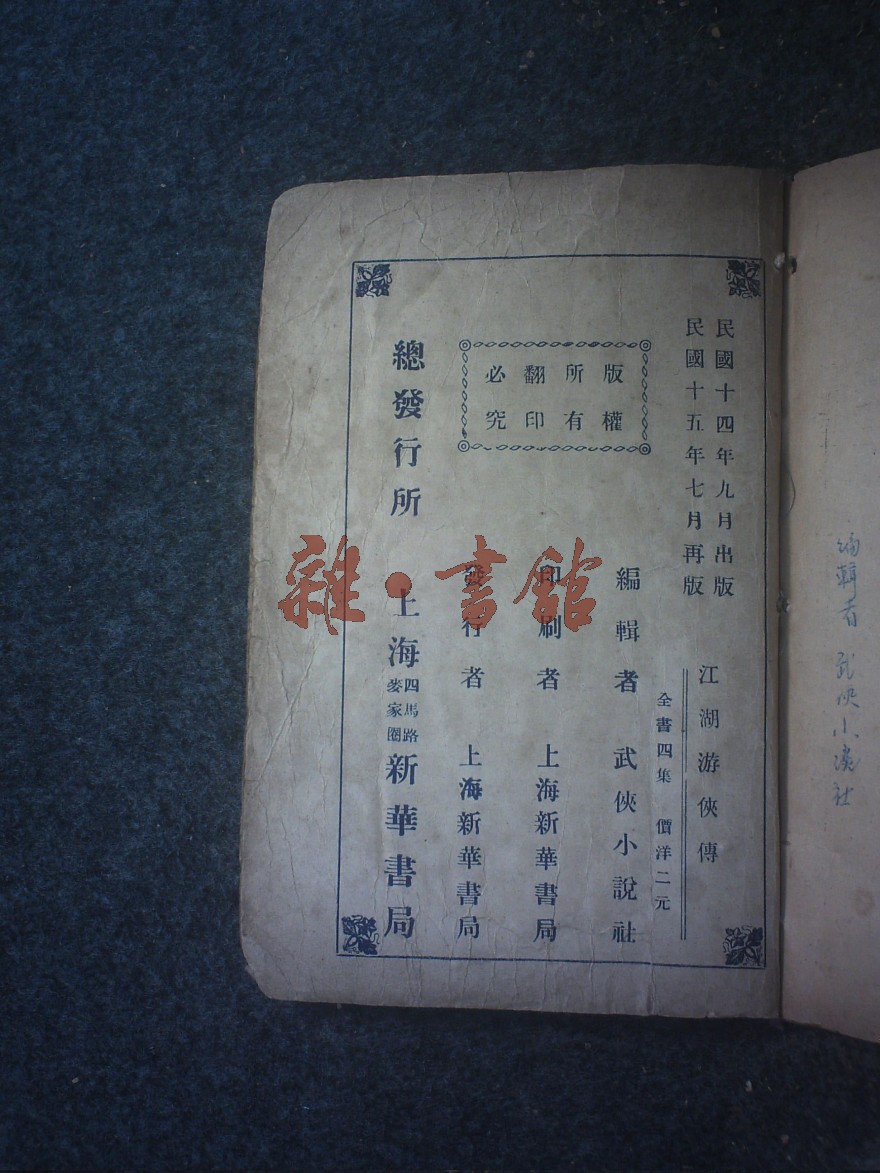 民國十四年九月出版
民國十五年七月再版
江湖游俠傳
全書四集 價洋二元
版權所有翻印必究
編輯者 武俠小說社
印刷者 上海新華書局
發行者 上海新華書局
總發行所 上海四馬路麥家圈新華書局
編輯者 武俠小說社
雜·書館